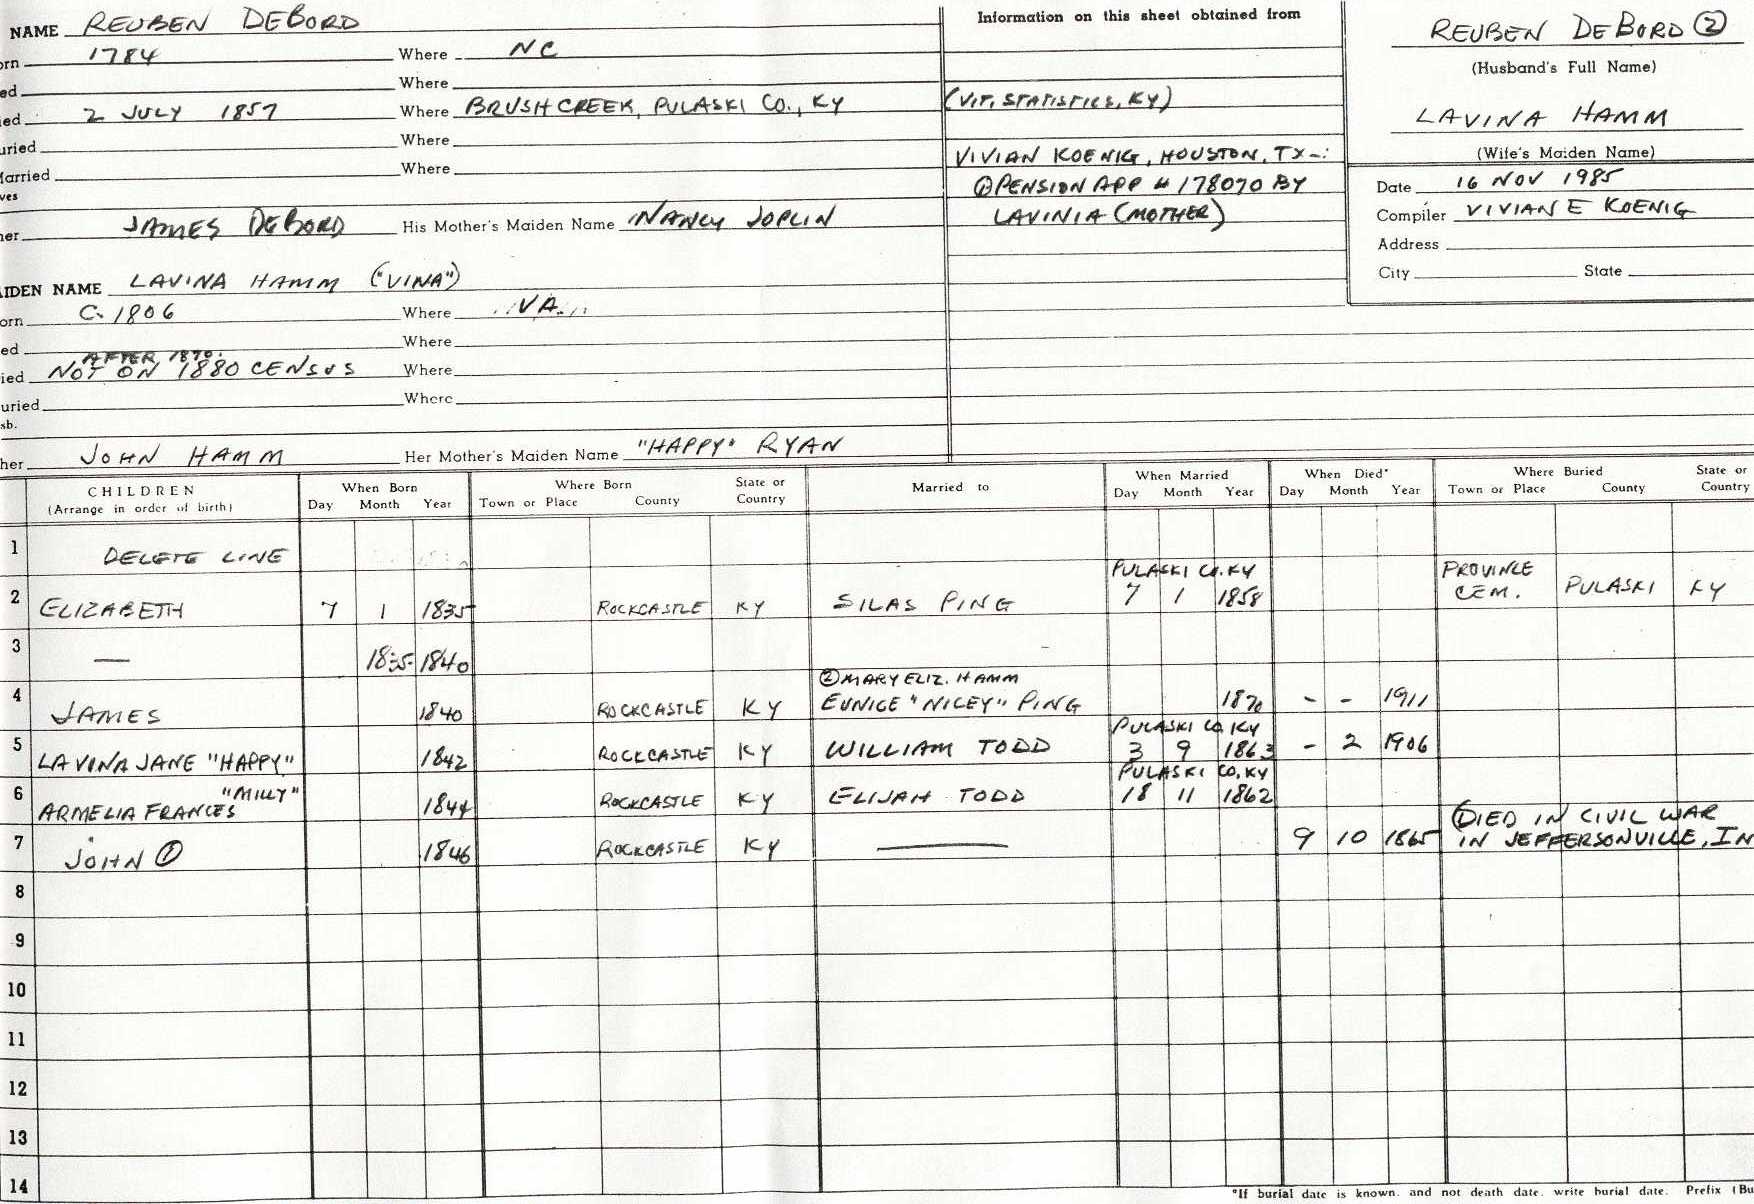 NAME REUBEN DEBORD
orn 1784 Where NC
ed Where
ied 2 JULY 1857 Where BRUSH CREEK, PULASKI CO., KY
uried Where
Married Where
ves
her JAMES DEBORD His Mother's Maiden Name NANCY JOPLIN
IDEN NAME LAVINA HAMM ("VINA")
orn C. 1806 Where VA.
ed Where
AFTER 1870.
ied NOT ON 1880 CENSUS Where
uried Where
sb.
her JOHN HAMM Her Mother's Maiden Name "HAPPY" RYAN
Information on this sheet obtained from
(VIT. STATISTICS, KY)
VIVIAN KOENIG, HOUSTON, TX-:
① PENSION APP # 178070 BY
LAVINIA (MOTHER)
REUBEN DEBORD ②
(Husband's Full Name)
LAVINA HAMM
(Wife's Maiden Name)
Date 16 NOV 1985
Compiler VIVIAN E KOENIG
Address
City State
CHILDREN When Born Where Born State or Married to When Married When Died* Where Buried State or
(Arrange in order of birth) Day Month Year Town or Place County Country Day Month Year Day Month Year Town or Place County Country
1 DELETE LINE
PULASKI CO. KY PROVINCE
2 ELIZABETH 7 1 1835 ROCKCASTLE KY SILAS PING 7 1 1858 CEM. PULASKI KY
3 — 1835-1840
② MARY ELIZ. HAMM
4 JAMES 1840 ROCKCASTLE KY EUNICE "NICEY" PING 1870 - - 1911
PULASKI CO. KY
5 LAVINA JANE "HAPPY" 1842 ROCKCASTLE KY WILLIAM TODD 3 9 1863 - 2 1906
"MILLY" PULASKI CO. KY
6 ARMELIA FRANCES 1844 ROCKCASTLE KY ELIJAH TODD 18 11 1862
DIED IN CIVIL WAR
7 JOHN ① 1846 ROCKCASTLE KY — 9 10 1865 IN JEFFERSONVILLE, IN
8
9
10
11
12
13
14
*If burial date is known, and not death date, write burial date. Prefix (Bu